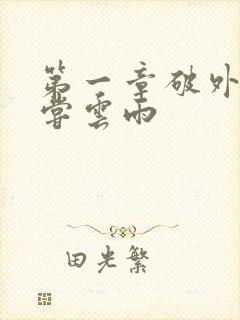 第一章破外
尝雲雨
田光繁